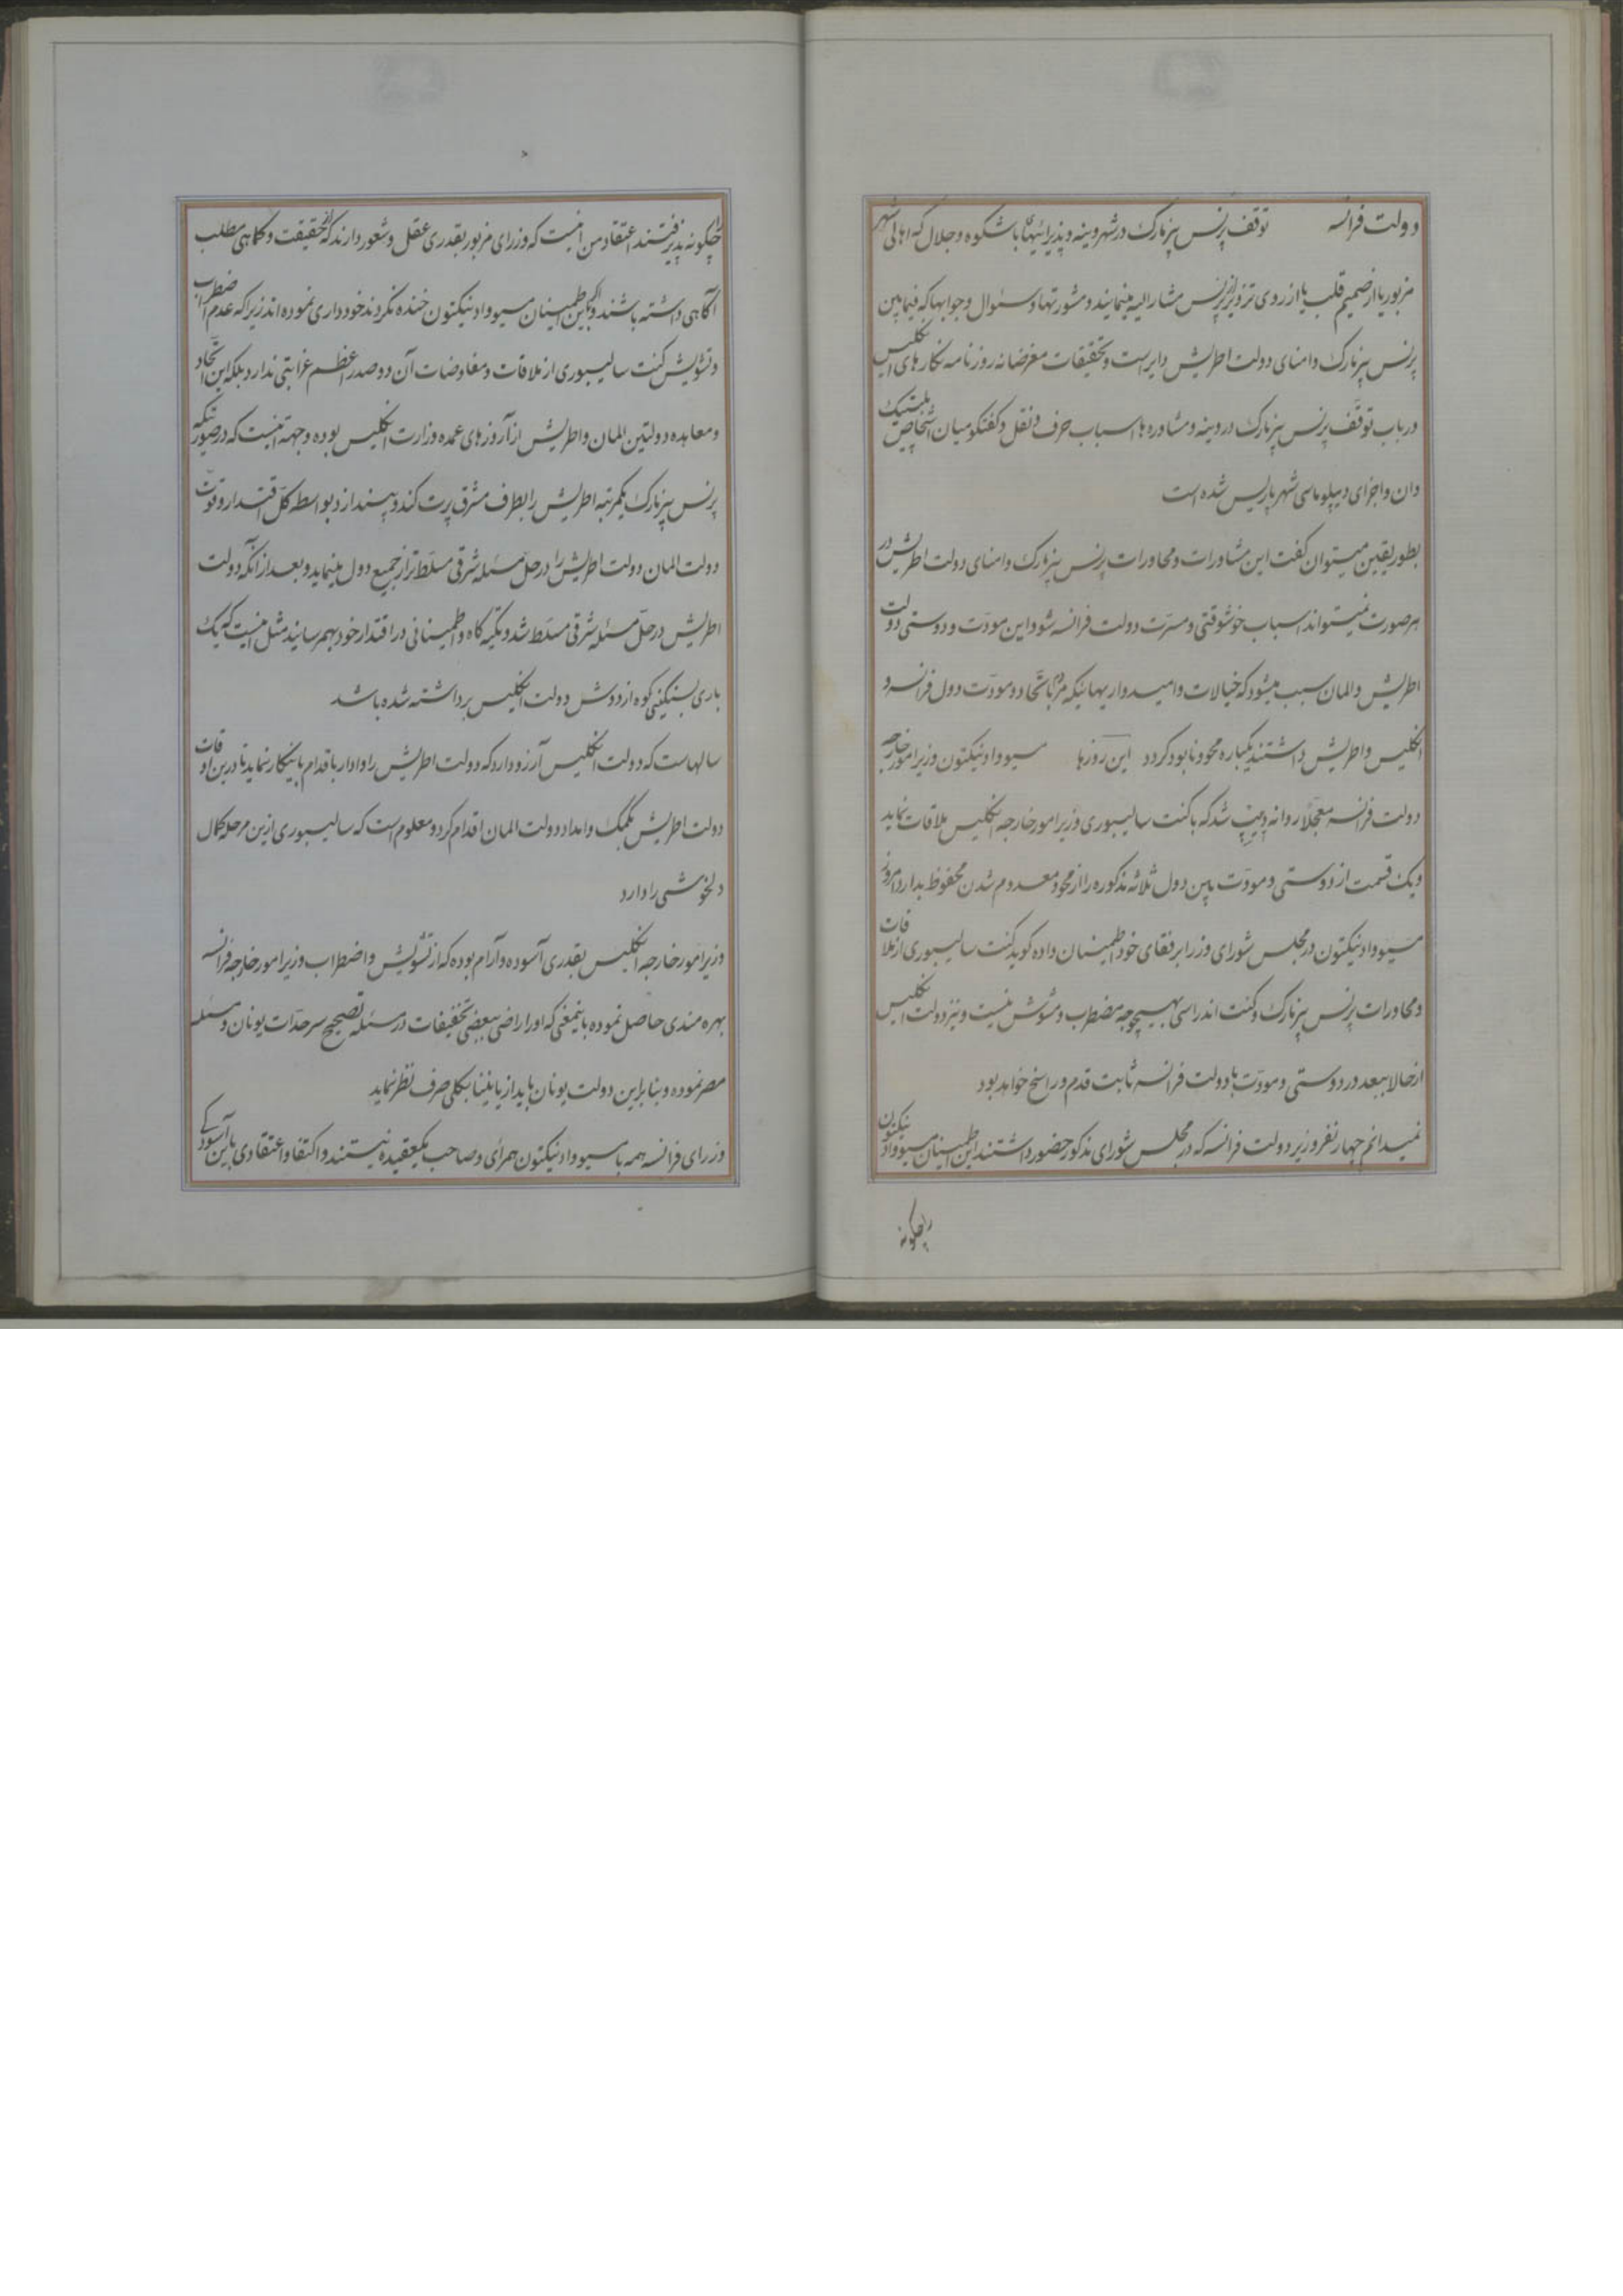 دولت فرانسه توقف پرنس بیزمارک در شهر وینه و پذیرائیهای باشکوه و جلال که اهالی شهر
مزبور یا از صمیم قلب یا از روی تزویر از پرنس مشارالیه مینمایند و مشورتها و سئوال و جوابها که فیمابین
پرنس بیزمارک و امنای دولت اطریش دایر است و تحقیقات مغرضانه روزنامه نگارهای انگلیس
در باب توقف پرنس بیزمارک در وینه و مشاوره ها اسباب حرف و نقل و گفتگو میان اشخاص پلتیک
دان و اجزای دیپلوماسی شهر پاریس شده است
بطور یقین میتوان گفت این مشاورات و محاورات پرنس بیزمارک و امنای دولت اطریش در
هر صورت نمیتواند اسباب خوشوقتی و مسرت دولت فرانسه شود و این مودت و دوستی دولت
اطریش و المان سبب میشود که خیالات و امیدواریهائیکه مردم باتحاد و مودت دول فرانسه و
انگلیس و اطریش داشتند یکباره محو و نابود گردد این روزها مسیو وادینکتون وزیر امور خارجه
دولت فرانسه معجلا روانه دیپ شد که با کنت سالیسبوری وزیر امور خارجه انگلیس ملاقات نماید
و یک قسمت از دوستی و مودت مابین دول ثلاثه مذکوره را از محو و معدوم شدن محفوظ بدارد امروز
مسیو وادینکتون در مجلس شورای وزرا برفقای خود اطمینان داده گوید کنت سالیسبوری از ملاقات
و محاورات پرنس بیزمارک و کنت اندراسی بهیچوجه مضطرب و مشوش نیست و نیز دولت انگلیس
از حالا ببعد در دوستی و مودت با دولت فرانسه ثابت قدم و راسخ خواهد بود
نمیدانم چهار نفر وزیر دولت فرانسه که در مجلس شورای مذکور حضور داشتند این اطمینان مسیو وادینکتون
را چگونه
را چگونه پذیرفتند اعتقاد من اینست که وزرای مزبور بقدری عقل و شعور دارند که از حقیقت و کماهی مطلب
آگاهی داشته باشند و اگر باین اطمینان مسیو وادینکتون خنده نکردند خودداری نموده اند زیرا که عدم اضطراب
و تشویش کنت سالیسبوری از ملاقات و مفاوضات آن دو صدر اعظم غرابتی ندارد بلکه این اتحاد
و معاهده دولتین المان و اطریش از آرزوهای عمده وزارت انگلیس بوده و جهه اینست که در صورتیکه
پرنس بیزمارک یکمرتبه اطریش را بطرف مشرق پرت کند و بیندازد بواسطه کل اقتدار و قوت
دولت المان دولت اطریش را در حل مسئله شرقی مسلط تر از جمیع دول مینماید و بعد از آنکه دولت
اطریش در حل مسئله شرقی مسلط شد و تکیه گاه و اطمینانی در اقتدار خود بهمرسانید مثل اینست که یک
باری بسنگینی کوه از دوش دولت انگلیس برداشته شده باشد
سالهاست که دولت انگلیس آرزو دارد که دولت اطریش را وادار باقدام باینکار نماید تا درین اوقات
دولت اطریش بکمک و امداد دولت المان اقدام کرد و معلوم است که سالیسبوری ازین مرحله کمال
دلخوشی را دارد
وزیر امور خارجه انگلیس بقدری آسوده و آرام بوده که از تشویش و اضطراب وزیر امور خارجه فرانسه
بهره مندی حاصل نموده باینمعنی که او را راضی ببعضی تخفیفات در مسئله تصحیح سرحدات یونان و مسئله
مصر نموده و بنابراین دولت یونان باید از یانینا بکلی صرف نظر نماید
وزرای فرانسه همه با مسیو وادینکتون همرأی و صاحب یکعقیده نیستند و اکتفا و اعتقادی باین آسودگی